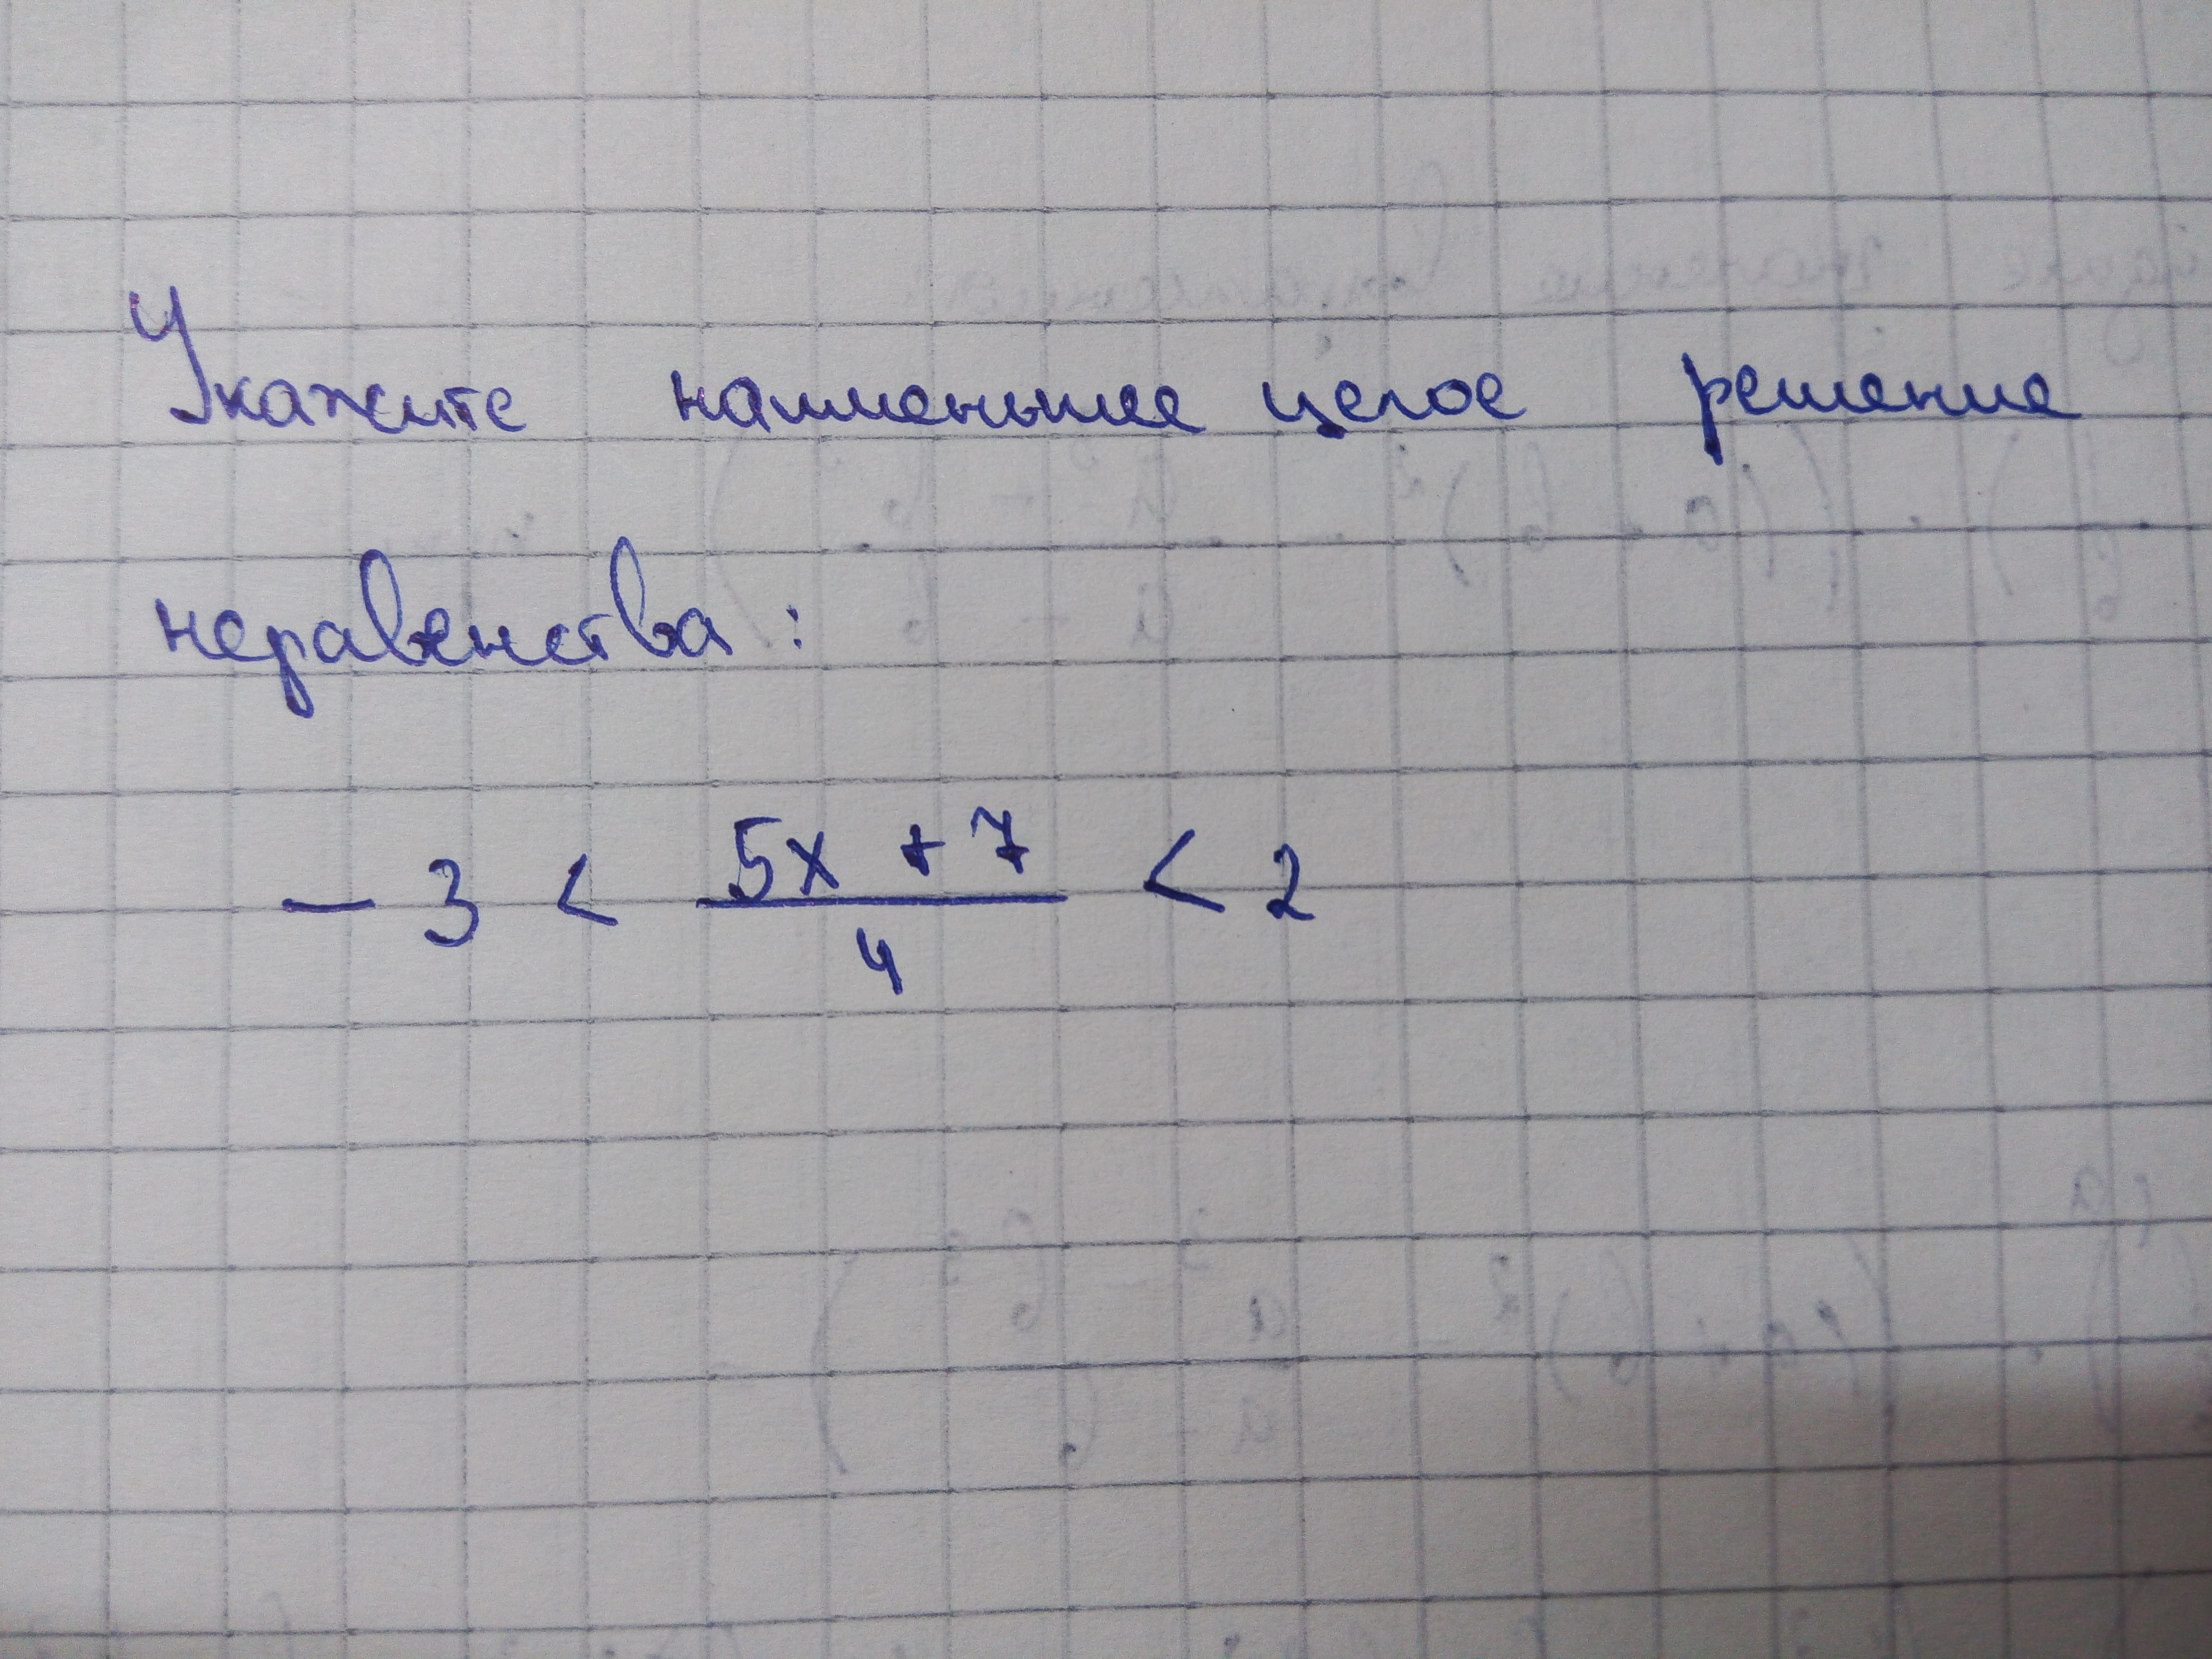 Укажите наименьшее целое решение
неравенства:
- 3 < \frac{5x + 7}{4} < 2